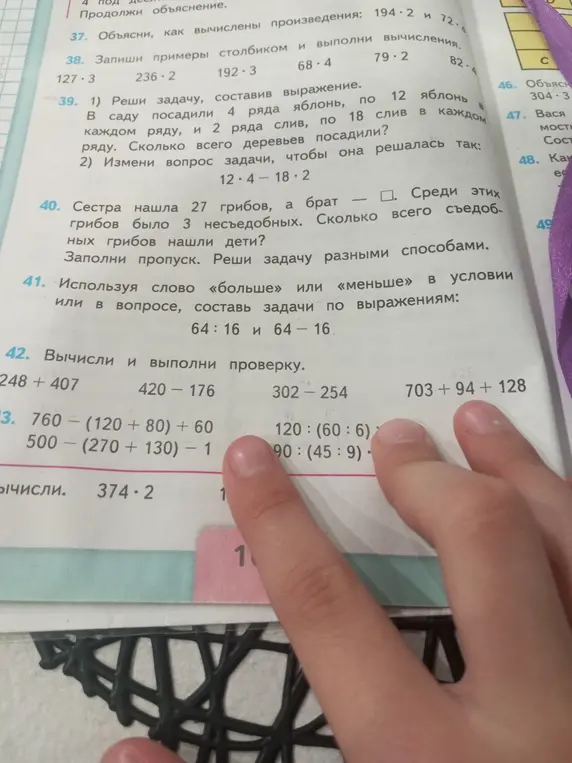 4 под
Продолжи объяснение.
37. Объясни, как вычислены произведения: 194 · 2 и 72
38. Запиши примеры столбиком и выполни вычисления.
127 · 3 236 · 2 192 · 3 68 · 4 79 · 2 82 ·
39. 1) Реши задачу, составив выражение.
В саду посадили 4 ряда яблонь, по 12 яблонь в
каждом ряду, и 2 ряда слив, по 18 слив в каждом
ряду. Сколько всего деревьев посадили?
2) Измени вопрос задачи, чтобы она решалась так:
12 · 4 – 18 · 2
40. Сестра нашла 27 грибов, а брат — □. Среди этих
грибов было 3 несъедобных. Сколько всего съедоб-
ных грибов нашли дети?
Заполни пропуск. Реши задачу разными способами.
41. Используя слово «больше» или «меньше» в условии
или в вопросе, составь задачи по выражениям:
64 : 16 и 64 – 16
42. Вычисли и выполни проверку.
248 + 407 420 – 176 302 – 254 703 + 94 + 128
3. 760 – (120 + 80) + 60 120 : (60 : 6)
500 – (270 + 130) – 1 90 : (45 : 9) ·
ычисли. 374 · 2 1
1
С
46. Объясн
304 · 3
47. Вася
мост
Сос
48. Ка
49